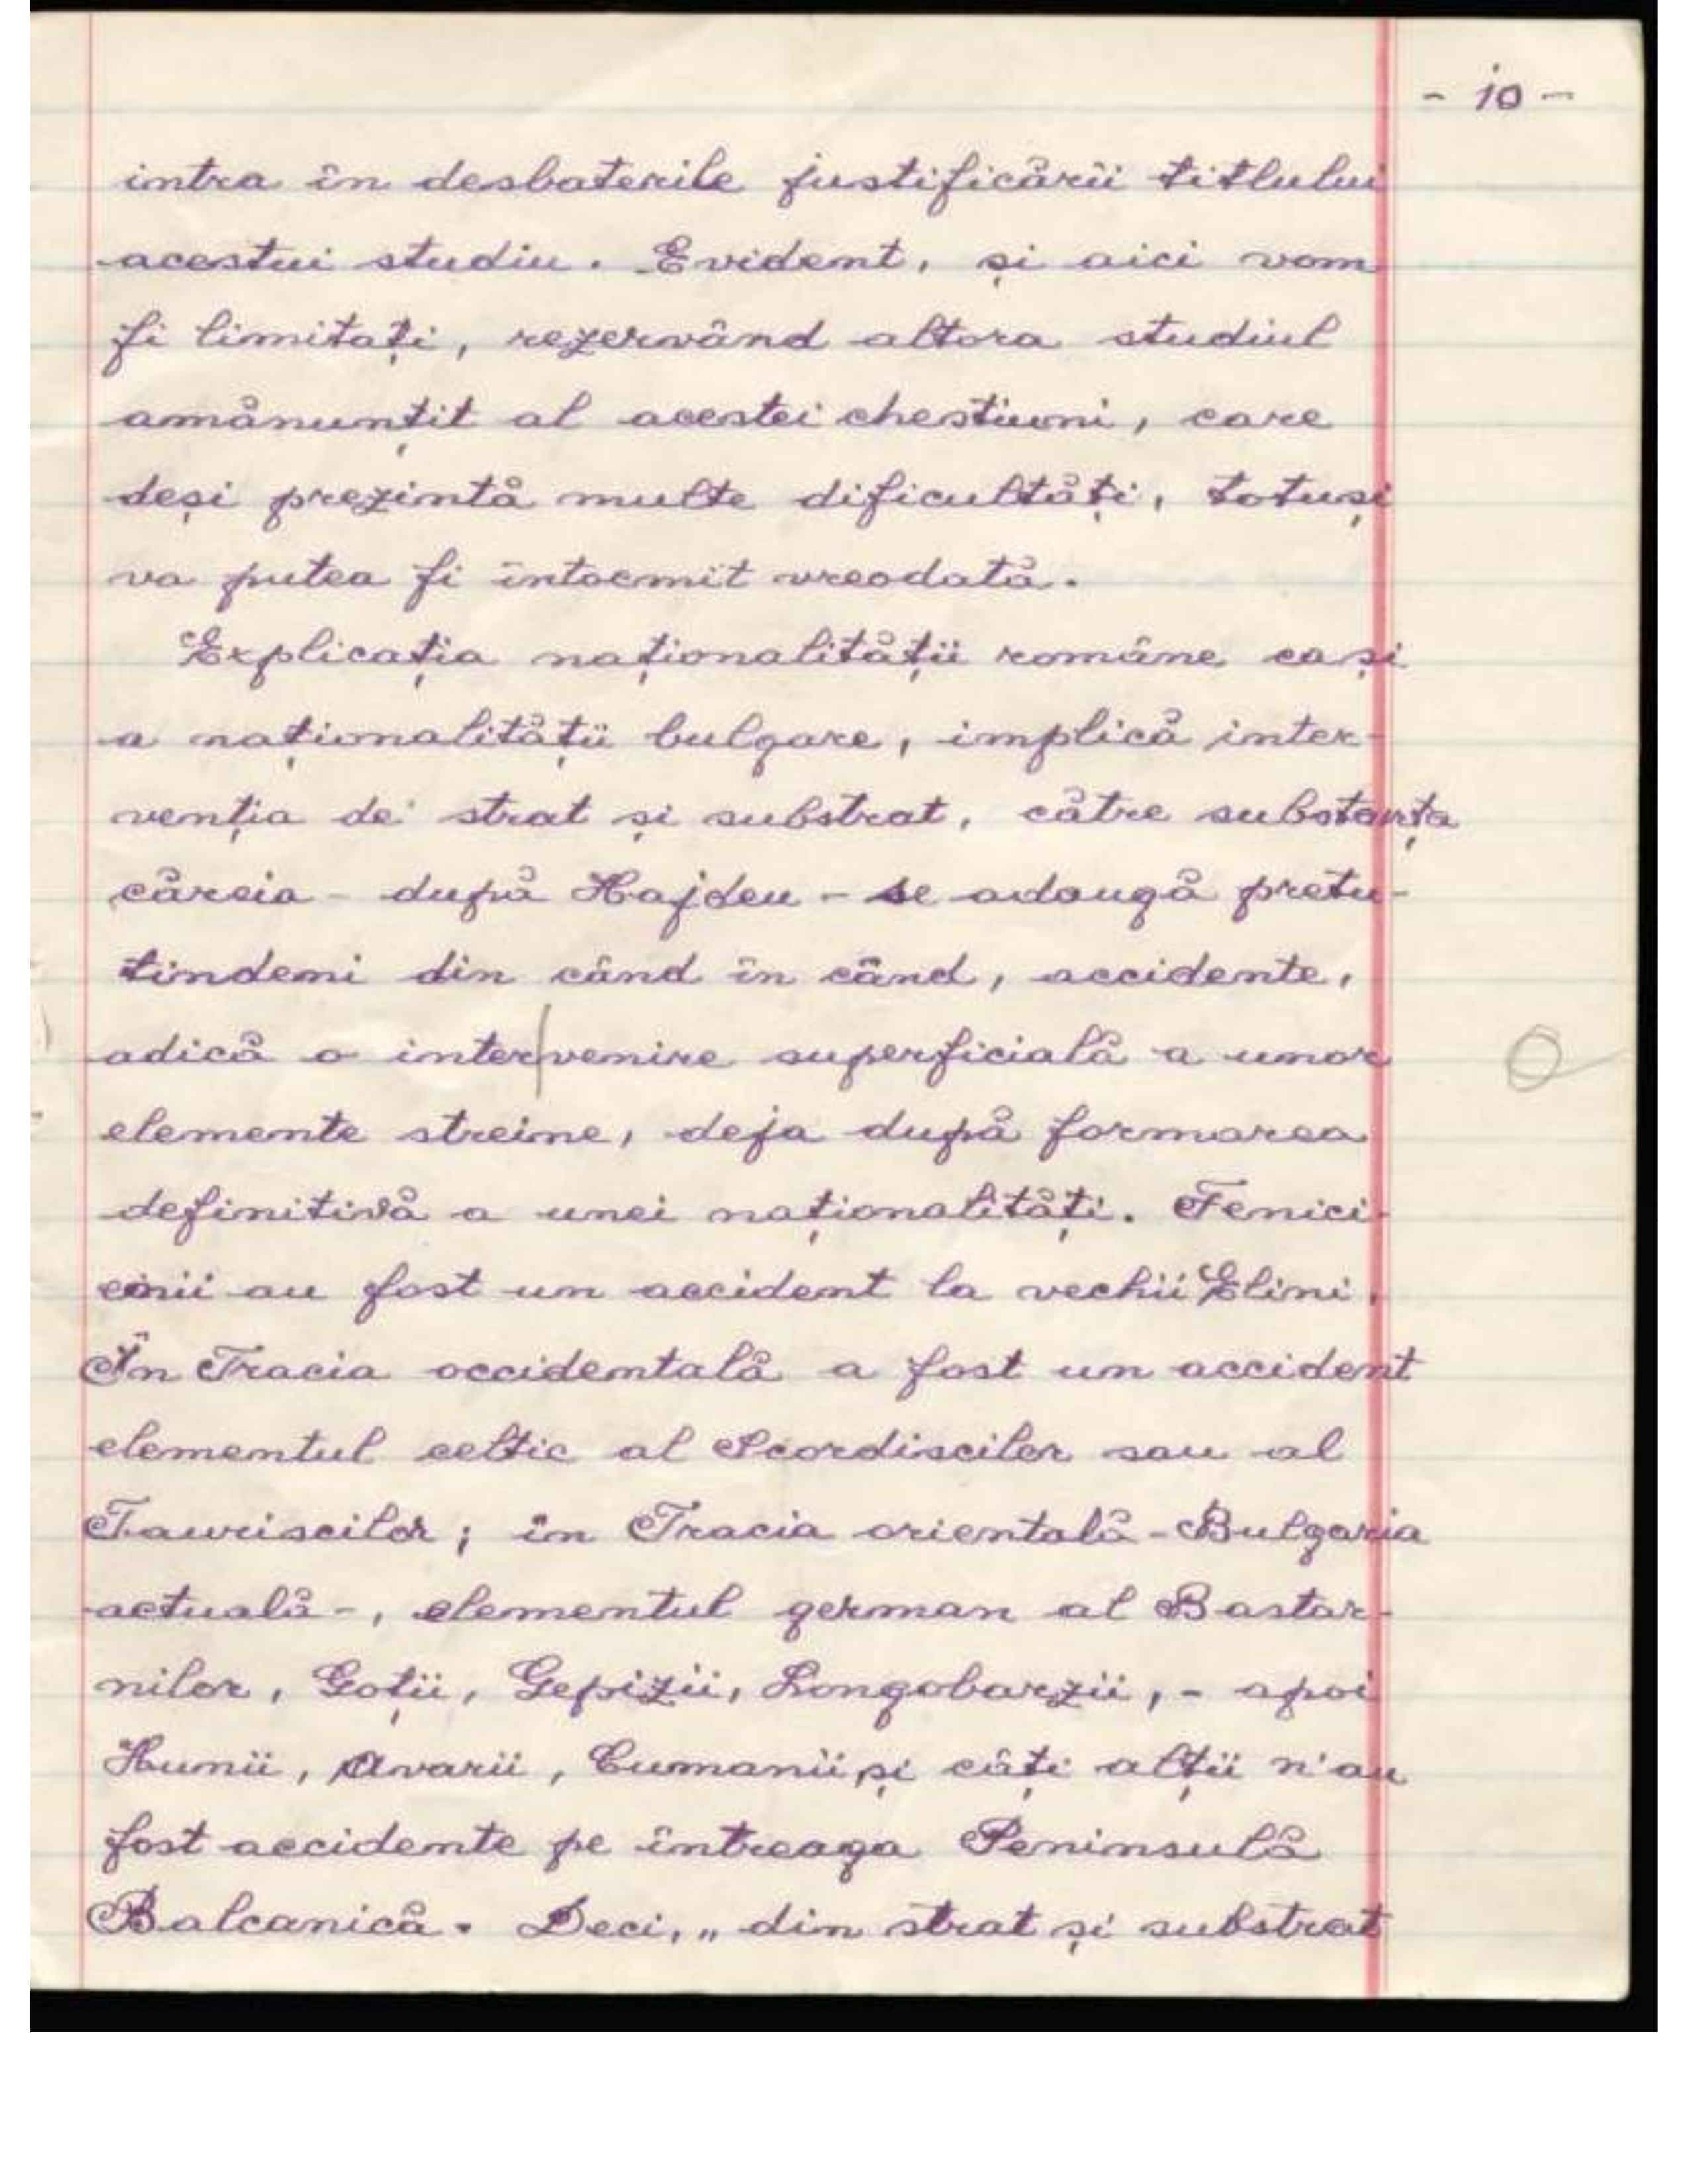 - 10 -
intra în desbaterile justificării titlului
acestui studiu. Evident, și aici vom
fi limitați, rezervând altora studiul
amănunțit al acestei chestiuni, care
deși prezintă multe dificultăți, totuși
va putea fi întocmit vreodată.
Explicația naționalității române cași
a naționalității bulgare, implică inter-
venția de strat și substrat, către substanța
căreia - după Hajdeu - se adaugă pretu-
tindeni din când în când, accidente,
adică o intervenire superficială a unor
elemente streine, deja după formarea
definitivă a unei naționalități. Fenici-
enii au fost un accident la vechii Elini.
În Tracia occidentală a fost un accident
elementul celtic al Scordiscilor sau al
Tauriscilor; în Tracia orientală - Bulgaria
actuală -, elementul german al Bastar-
nilor, Goții, Gepizii, Longobarzii, - apoi
Hunii, Avarii, Cumanii și câți alții n'au
fost accidente pe întreaga Peninsulă
Balcanică. Deci, „din strat și substrat